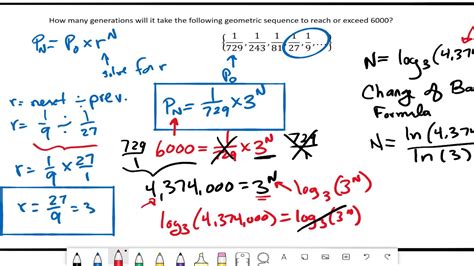 How many generations will it take the following geometric sequence to reach or exceed 6000?
{1/729, 1/243, 1/81, 1/27, 1/9, ...}
P_N = P_0 × r^N
solve for r
P_0
r = next ÷ prev.
r = 1/9 ÷ 1/27
r = 1/9 × 27/1
r = 27/9 = 3
P_N = 1/729 × 3^N
729/1 6000 = 1/729 × 3^N 729/1
4,374,000 = 3^N log_3(3^N)
log_3(4,374,000) = log_3(3^N)
N = log_3(4,374
Change of Ba
Formula
N = ln(4,37 / ln(3)